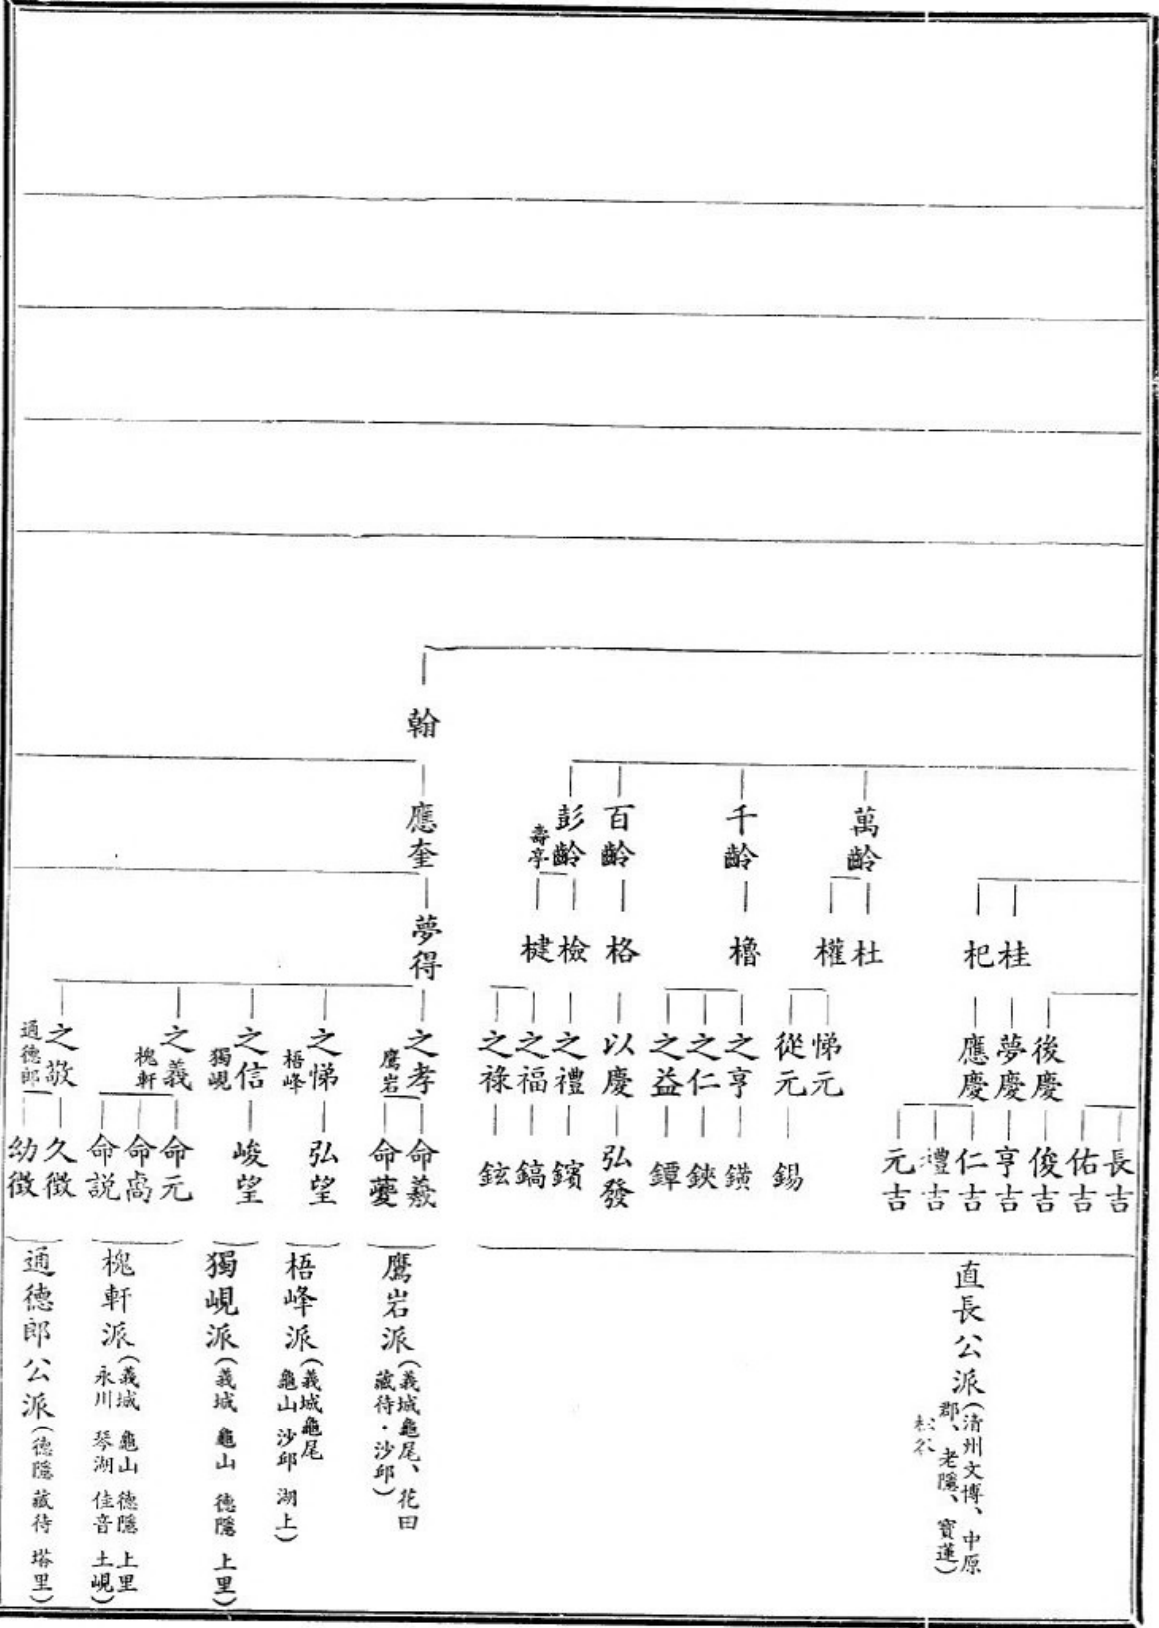 翰
萬齡
千齡
百齡
彭齡
壽亭
應奎
桂
杞
杜
權
櫓
格
檢
楗
夢得
後慶
夢慶
應慶
悌元
從元
之亨
之仁
之益
以慶
之禮
之福
之祿
之孝
鷹岩
之悌
梧峰
之信
獨峴
之義
槐軒
之敬
通德郎
長吉
佑吉
俊吉
亨吉
仁吉
禮吉
元吉
錫
鐄
鋏
鐔
弘發
鑌
鎬
鉉
命羲
命夔
弘望
峻望
命元
命卨
命說
久徵
幼徵
直長公派(清州文博、中原
郡、老隱、寶蓮)
松谷
鷹岩派(義城龜尾、花田
藏待·沙邱)
梧峰派(義城龜尾
龜山 沙邱 湖上)
獨峴派(義城 龜山 德隱 上里)
槐軒派(義城 龜山 德隱 上里
永川 琴湖 佳音 土峴)
通德郎公派(德隱 藏待 塔里)